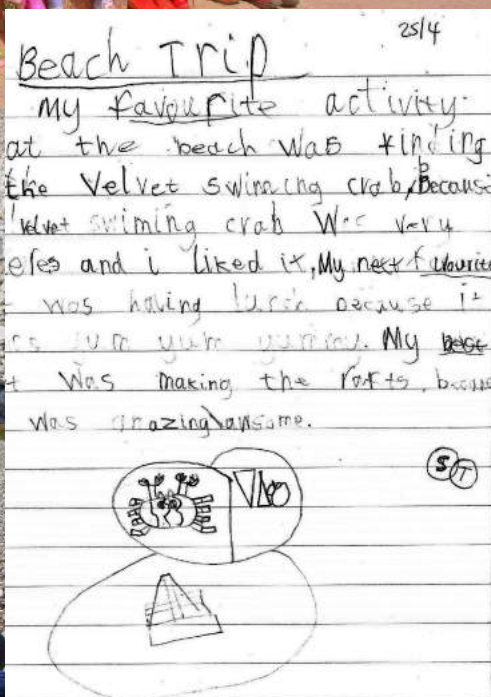 25/4
Beach Trip
My favourite activity
at the beach was finding
the Velvet swimcing crab, Because
velvet swiming crab Was very
and i liked it, My next favourite
was having lunch because it
yum yum yummy. My best
Was making the rafts because
Was amazing awsome.
S T